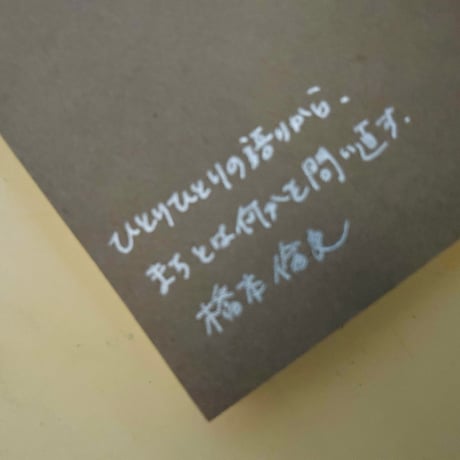 ひとりひとりの語りから、
まちとは何かを問い直す.
橋本倫史